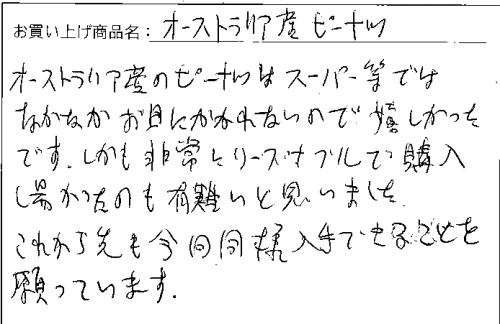 お買い上げ商品名: オーストラリア産 ピーナッツ
オーストラリア産のピーナッツは スーパー等では
なかなか お目にかかれないので 嬉しかった
です. しかも 非常にリーズナブルで 購入
し易かったのも 有難いと思いました.
これから先も 今回同様 入手できることを
願っています.